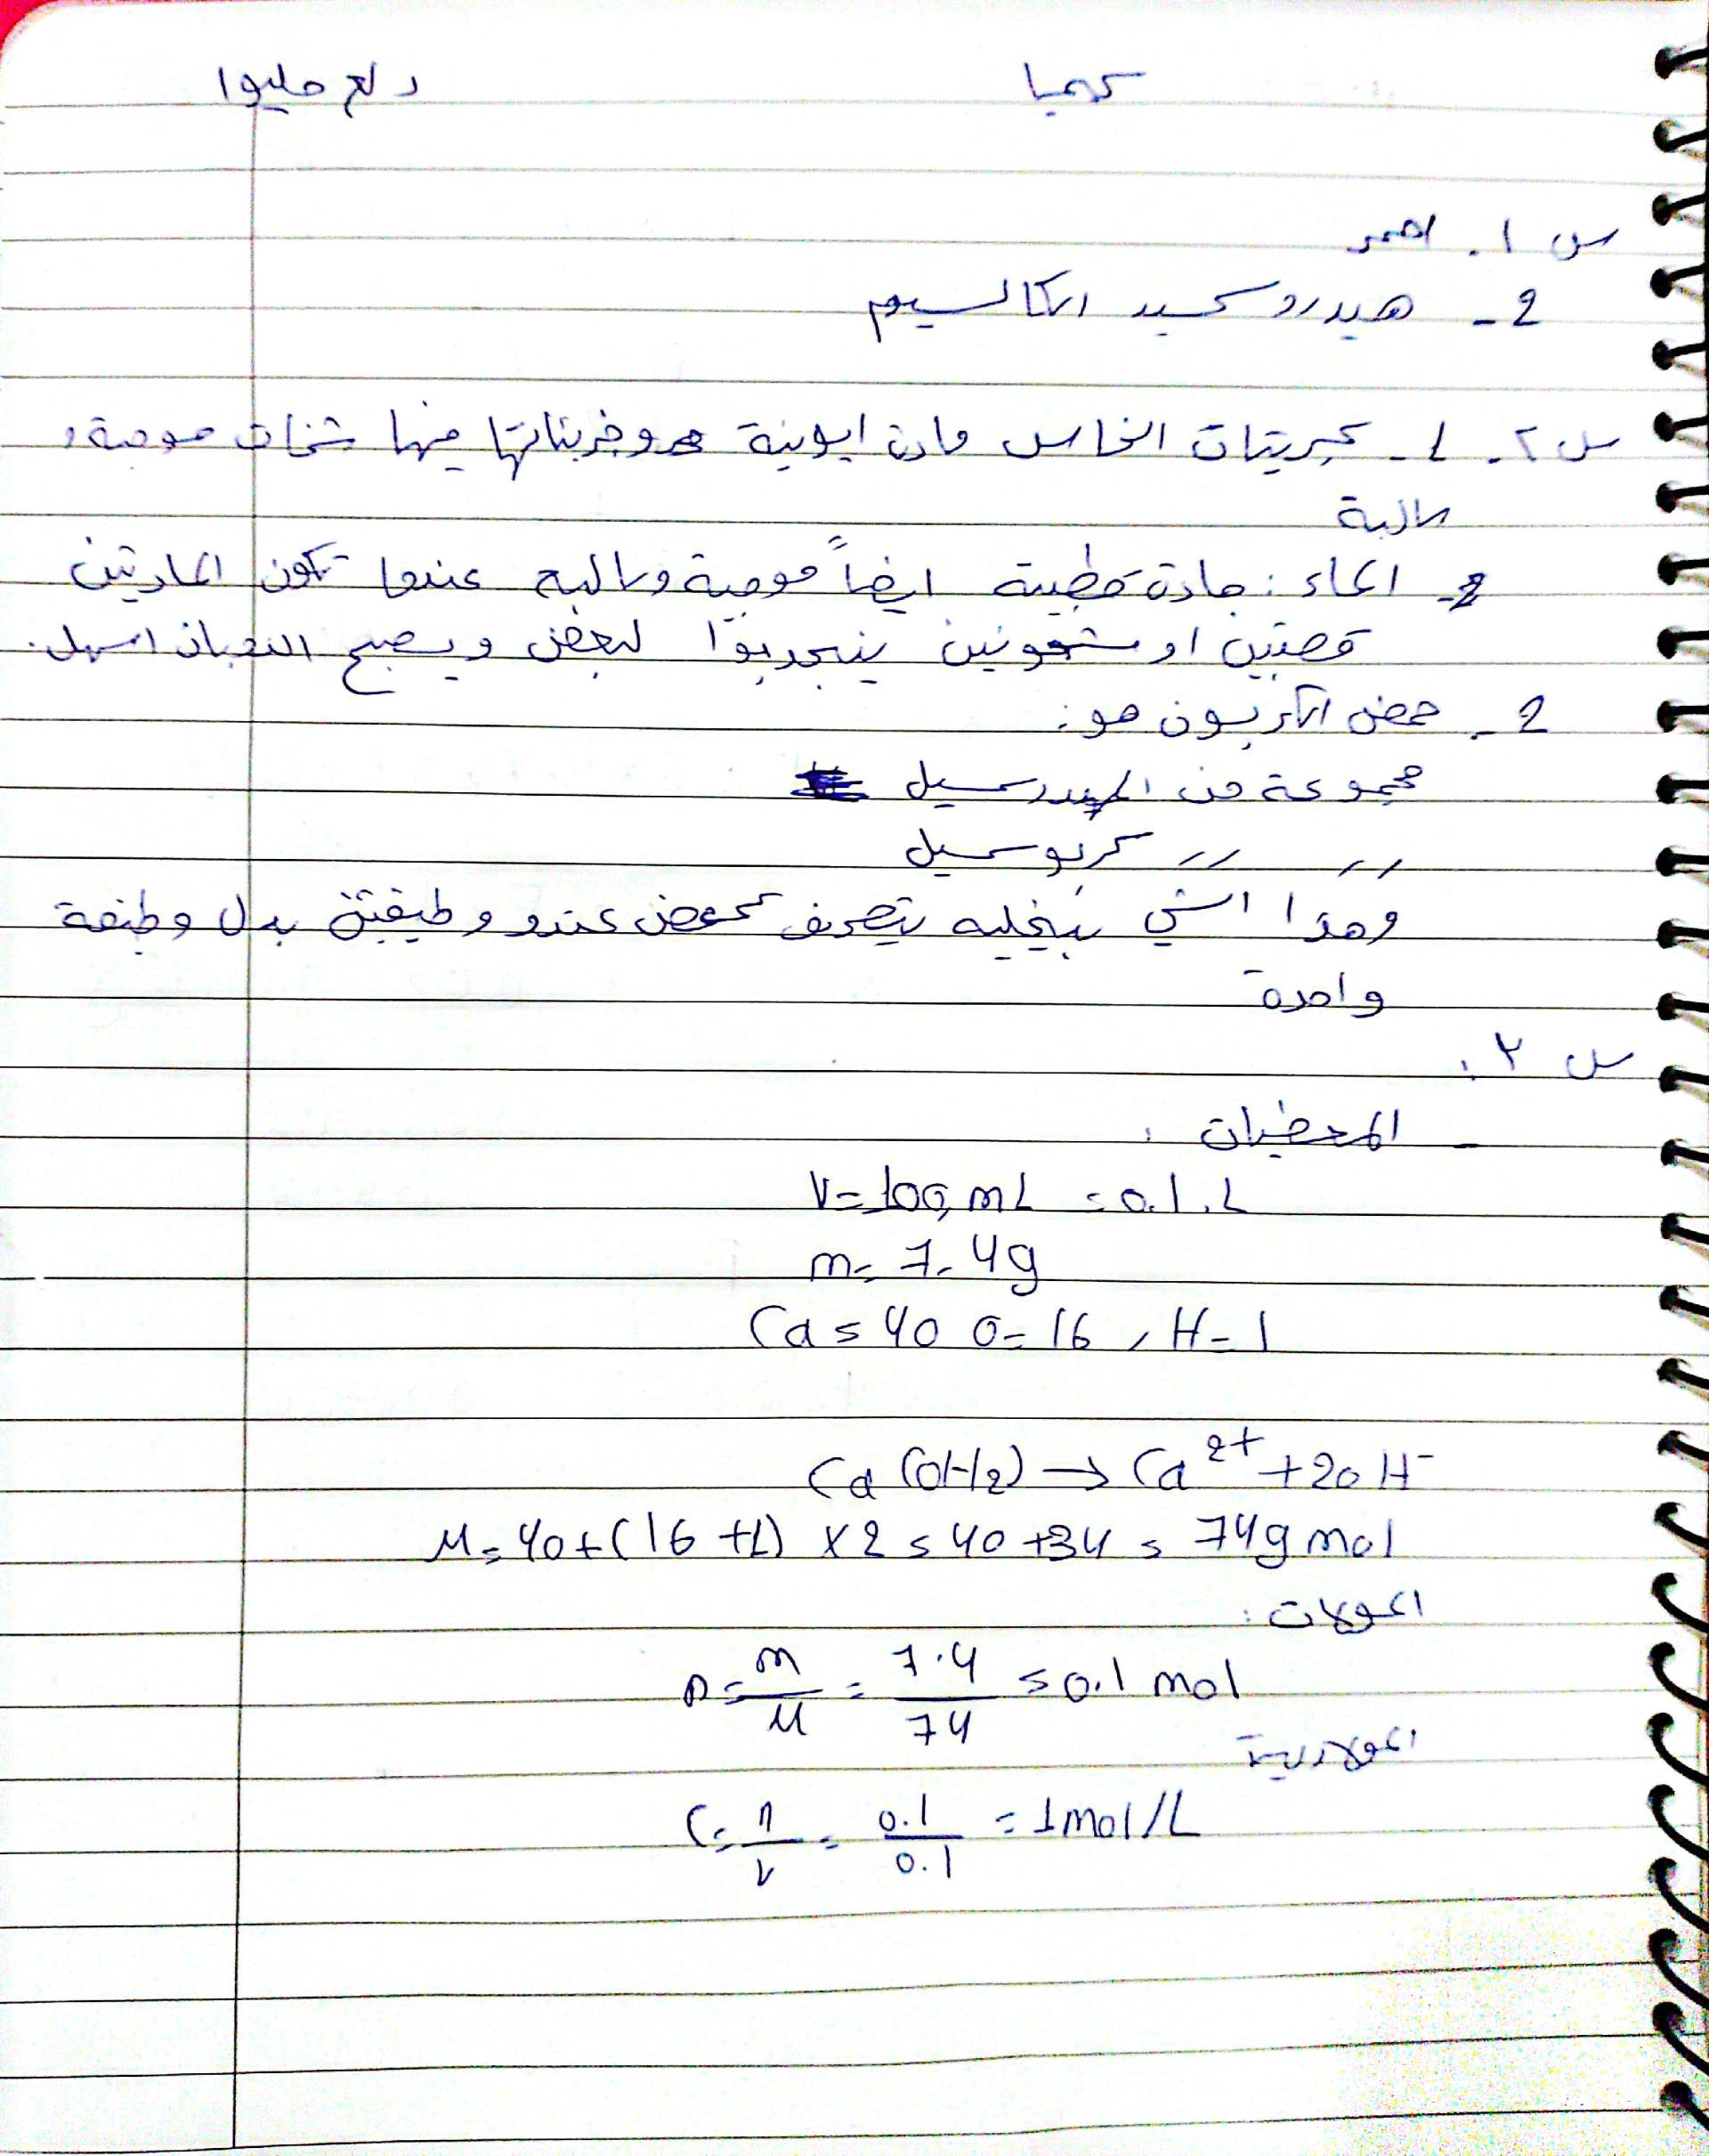 كيميا
س ١. احمر
2 - هيدروكسيد الكالسيوم
س ٢. 1 - كبريتات النحاس مادة ايونية فيها شحنات موجبة و
سالبة
2- الماء: مادة قطبية ايضاً موجبة وسالبة عندما تكون المادتين
قطبتين او مشحونين ينجذبوا لبعض ويصبح الذوبان اسهل.
2 - حمض الكربون هو:
مجموعة من الهيدركسيل
〃 〃 كربوكسيل
وهذا الشي بيخليه يتصرف كحمض عندو وظيفتين بدل وظيفة
واحدة
س ٣:
- المعطيات:
V = 100 mL = 0.1 L
m = 7.4g
Ca = 40 O = 16, H = 1
Ca (OH2) → Ca²⁺ + 2OH⁻
M = 40 + (16 + 1) × 2 = 40 + 34 = 74g mol
المولات:
n = m/M = 7.4/74 = 0.1 mol
المولارية
C = n/V = 0.1/0.1 = 1mol/L